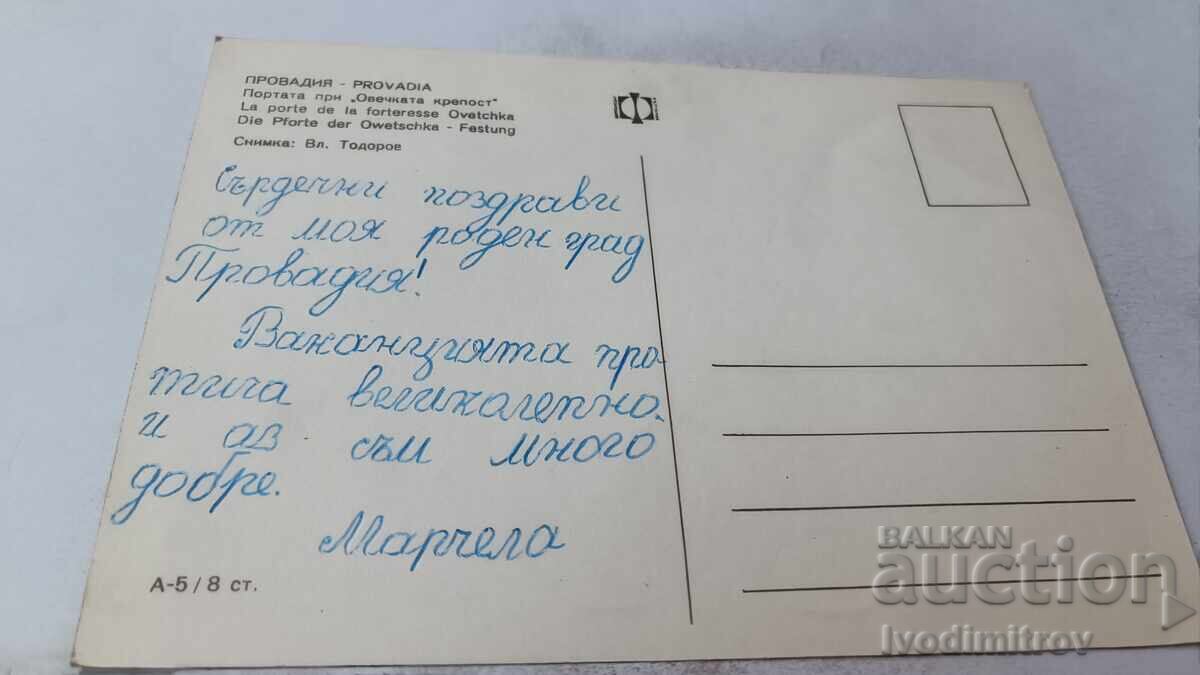 ПРОВАДИЯ - PROVADIA
Портата при „Овечката крепост"
La porte de la forteresse Ovetchka
Die Pforte der Owetschka - Festung
Снимка: Вл. Тодоров
Сърдечни поздрави
от моя роден град
Провадия!
Ваканцията про-
тича великолепно.
и аз съм много
добре.
Марчела
А-5 / 8 ст.
BALKAN
auction
Ivodimitrov